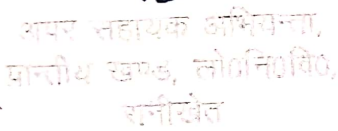 अपर सहायक अभियन्ता,
प्रान्तीय खण्ड, लो०नि०वि०,
रानीखेत